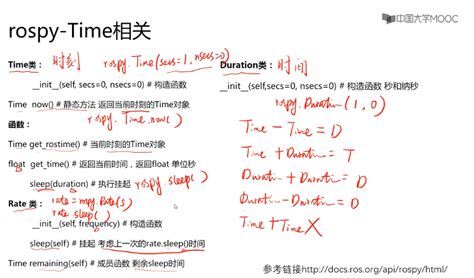 rospy-Time相关
中国大学MOOC
Time类： 时刻 rospy.Time(secs=1, nsecs=0)
__init__(self, secs=0, nsecs=0) # 构造函数
Time now() # 静态方法 返回当前时刻的Time对象
rospy.Time.now()
函数：
Time get_rostime() # 当前时刻的Time对象
float get_time() # 返回当前时间，返回float 单位秒
sleep(duration) # 执行挂起 rospy.sleep( )
Rate 类： rate=rospy.Rate(5)
rate.sleep( )
__init__(self, frequency) # 构造函数
sleep(self) # 挂起 考虑上一次的rate.sleep()时间
Time remaining(self) # 成员函数 剩余sleep时间
Duration类： 时间
__init__(self,secs=0, nsecs=0) # 构造函数 秒和纳秒
rospy.Duration(1,0)
Time - Time = D
Time + Duration = T
Duration + Duration = D
Duration - Duration = D
Time + Time X
参考链接http://docs.ros.org/api/rospy/html/